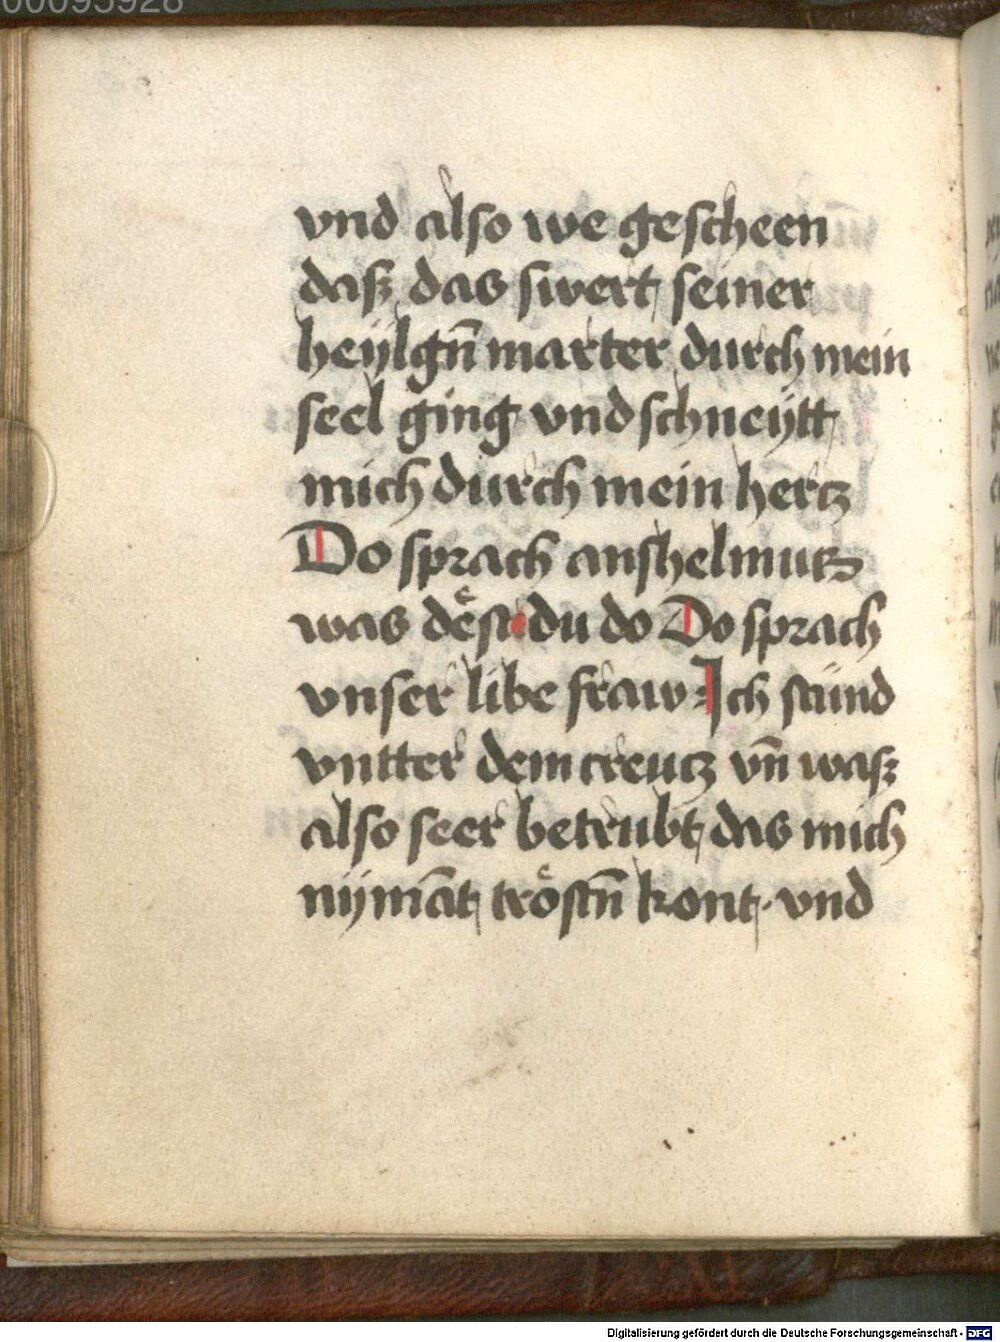 00095928
vnd also we gescheen
dasz das swert seiner
heÿlgn̄ marter durch mein
seel ging vnd schneÿtt
mich durch mein hertz
Do sprach anshelmutz
was deͤst du do Do sprach
vnser libe fraw Ich stund
vntter dem creutz vn̄ wasz
also seer betrubt das mich
nÿmāt troͤstn̄ kont · vnd
Digitalisierung gefördert durch die Deutsche Forschungsgemeinschaft - DFG